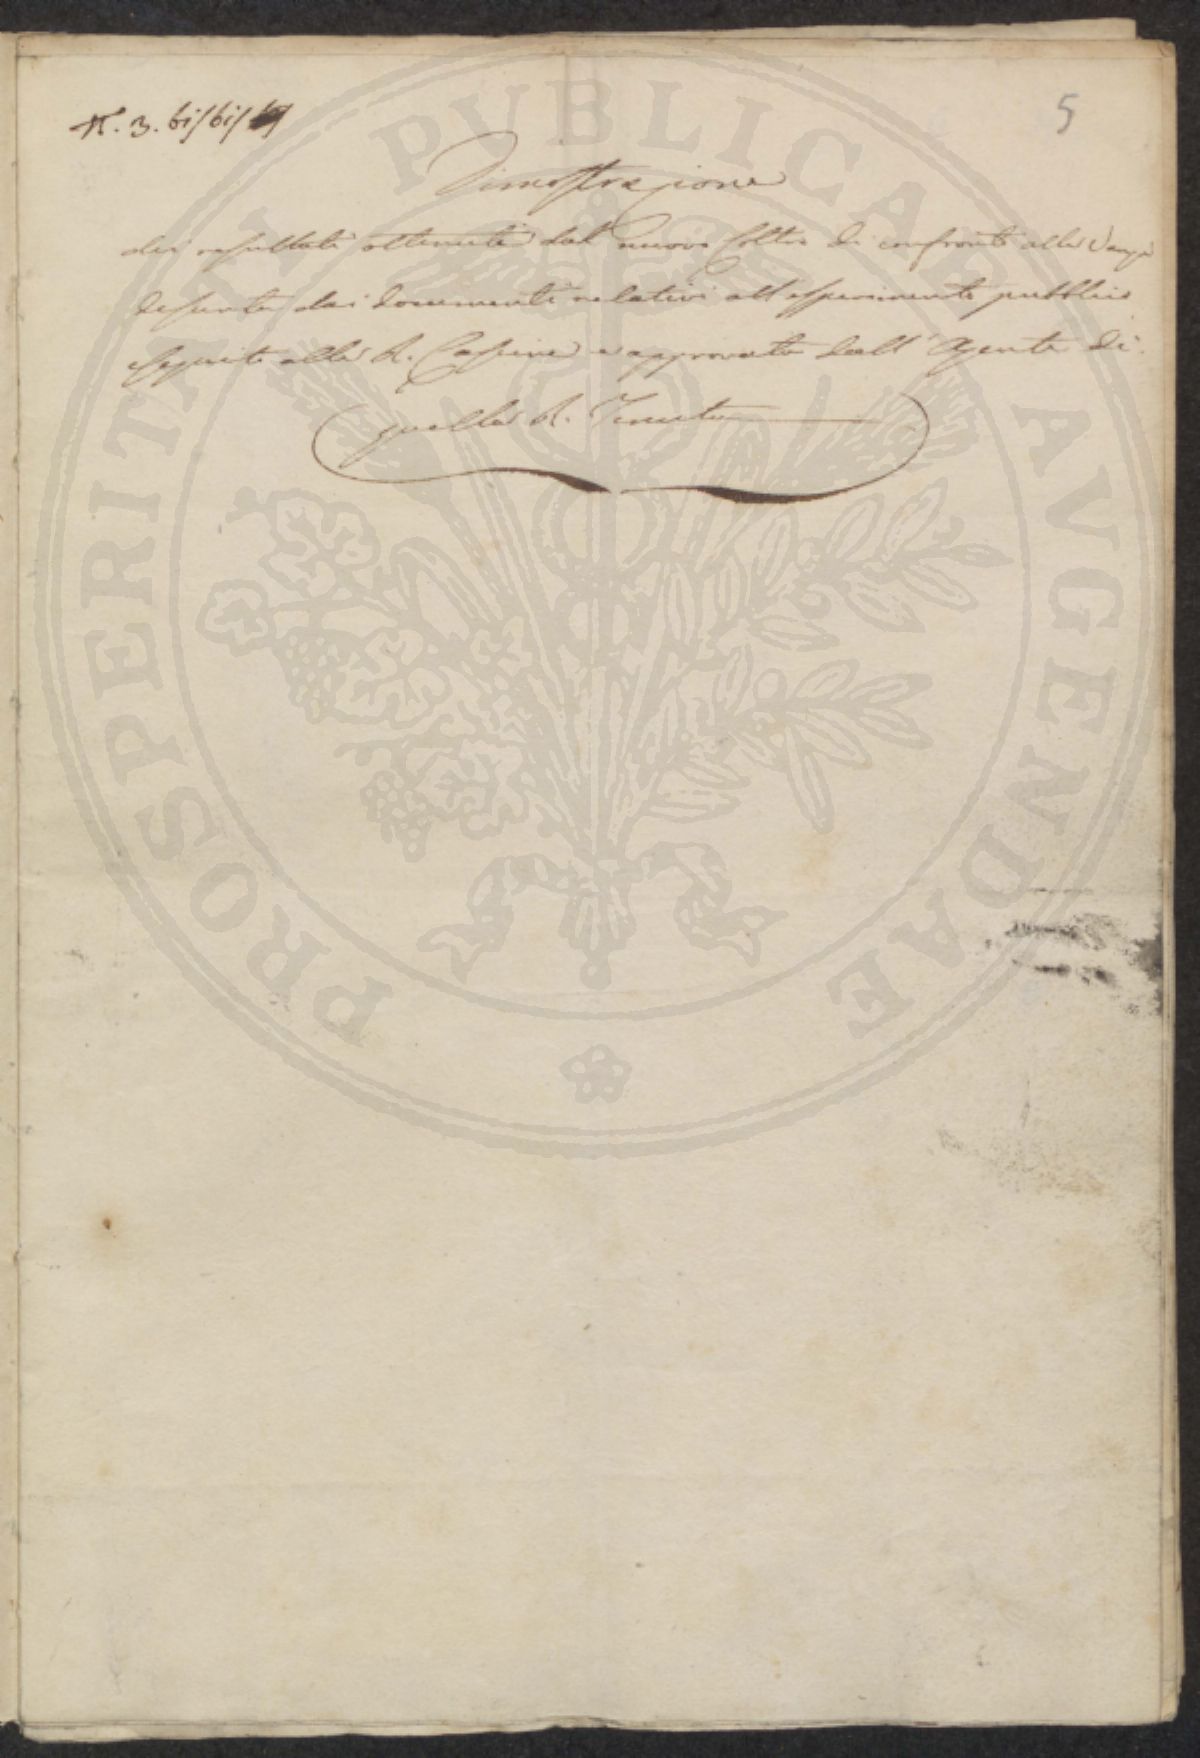 N. 3. bis/bis/
5
Dimostrazione
dei resultati ottenuti dal nuovo Coltro di confronto alla Vanga
desunta dai documenti relativi all'esperimento pubblico
eseguito alle R. Cascine e approvata dall'Agente di
quella R. Tenuta
PROSPERITATI PUBLICAE AVGENDAE